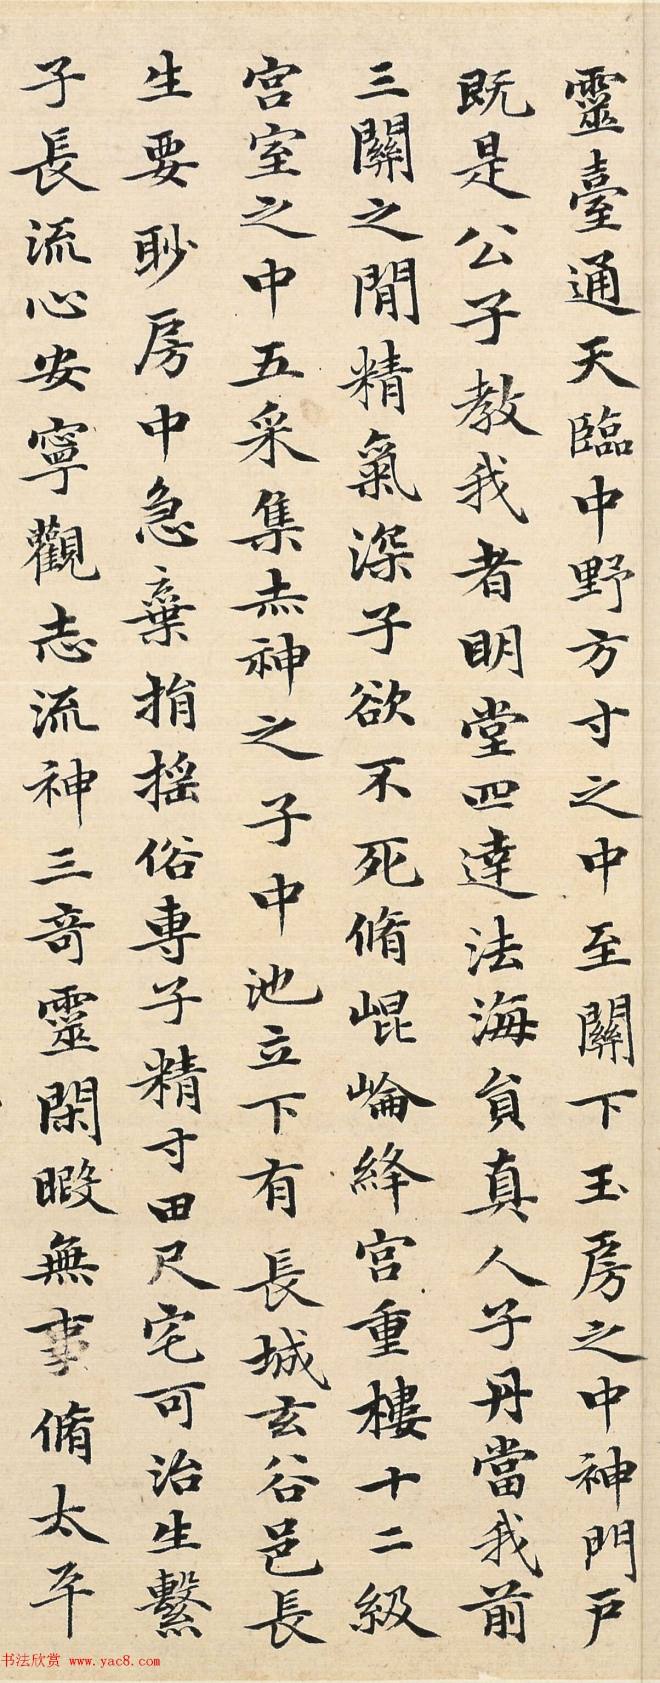 靈臺通天臨中野方寸之中至關下玉房之中神門戶
既是公子教我者明堂四達法海負真人子丹當我前
三關之閒精氣深子欲不死脩崐崘絳宮重樓十二級
宮室之中五采集赤神之子中池立下有長城玄谷邑長
生要眇房中急棄捐搖俗專子精寸田尺宅可治生繫
子長流心安寧觀志流神三奇靈閑暇無事脩太平
书法欣赏 www.yac8.com